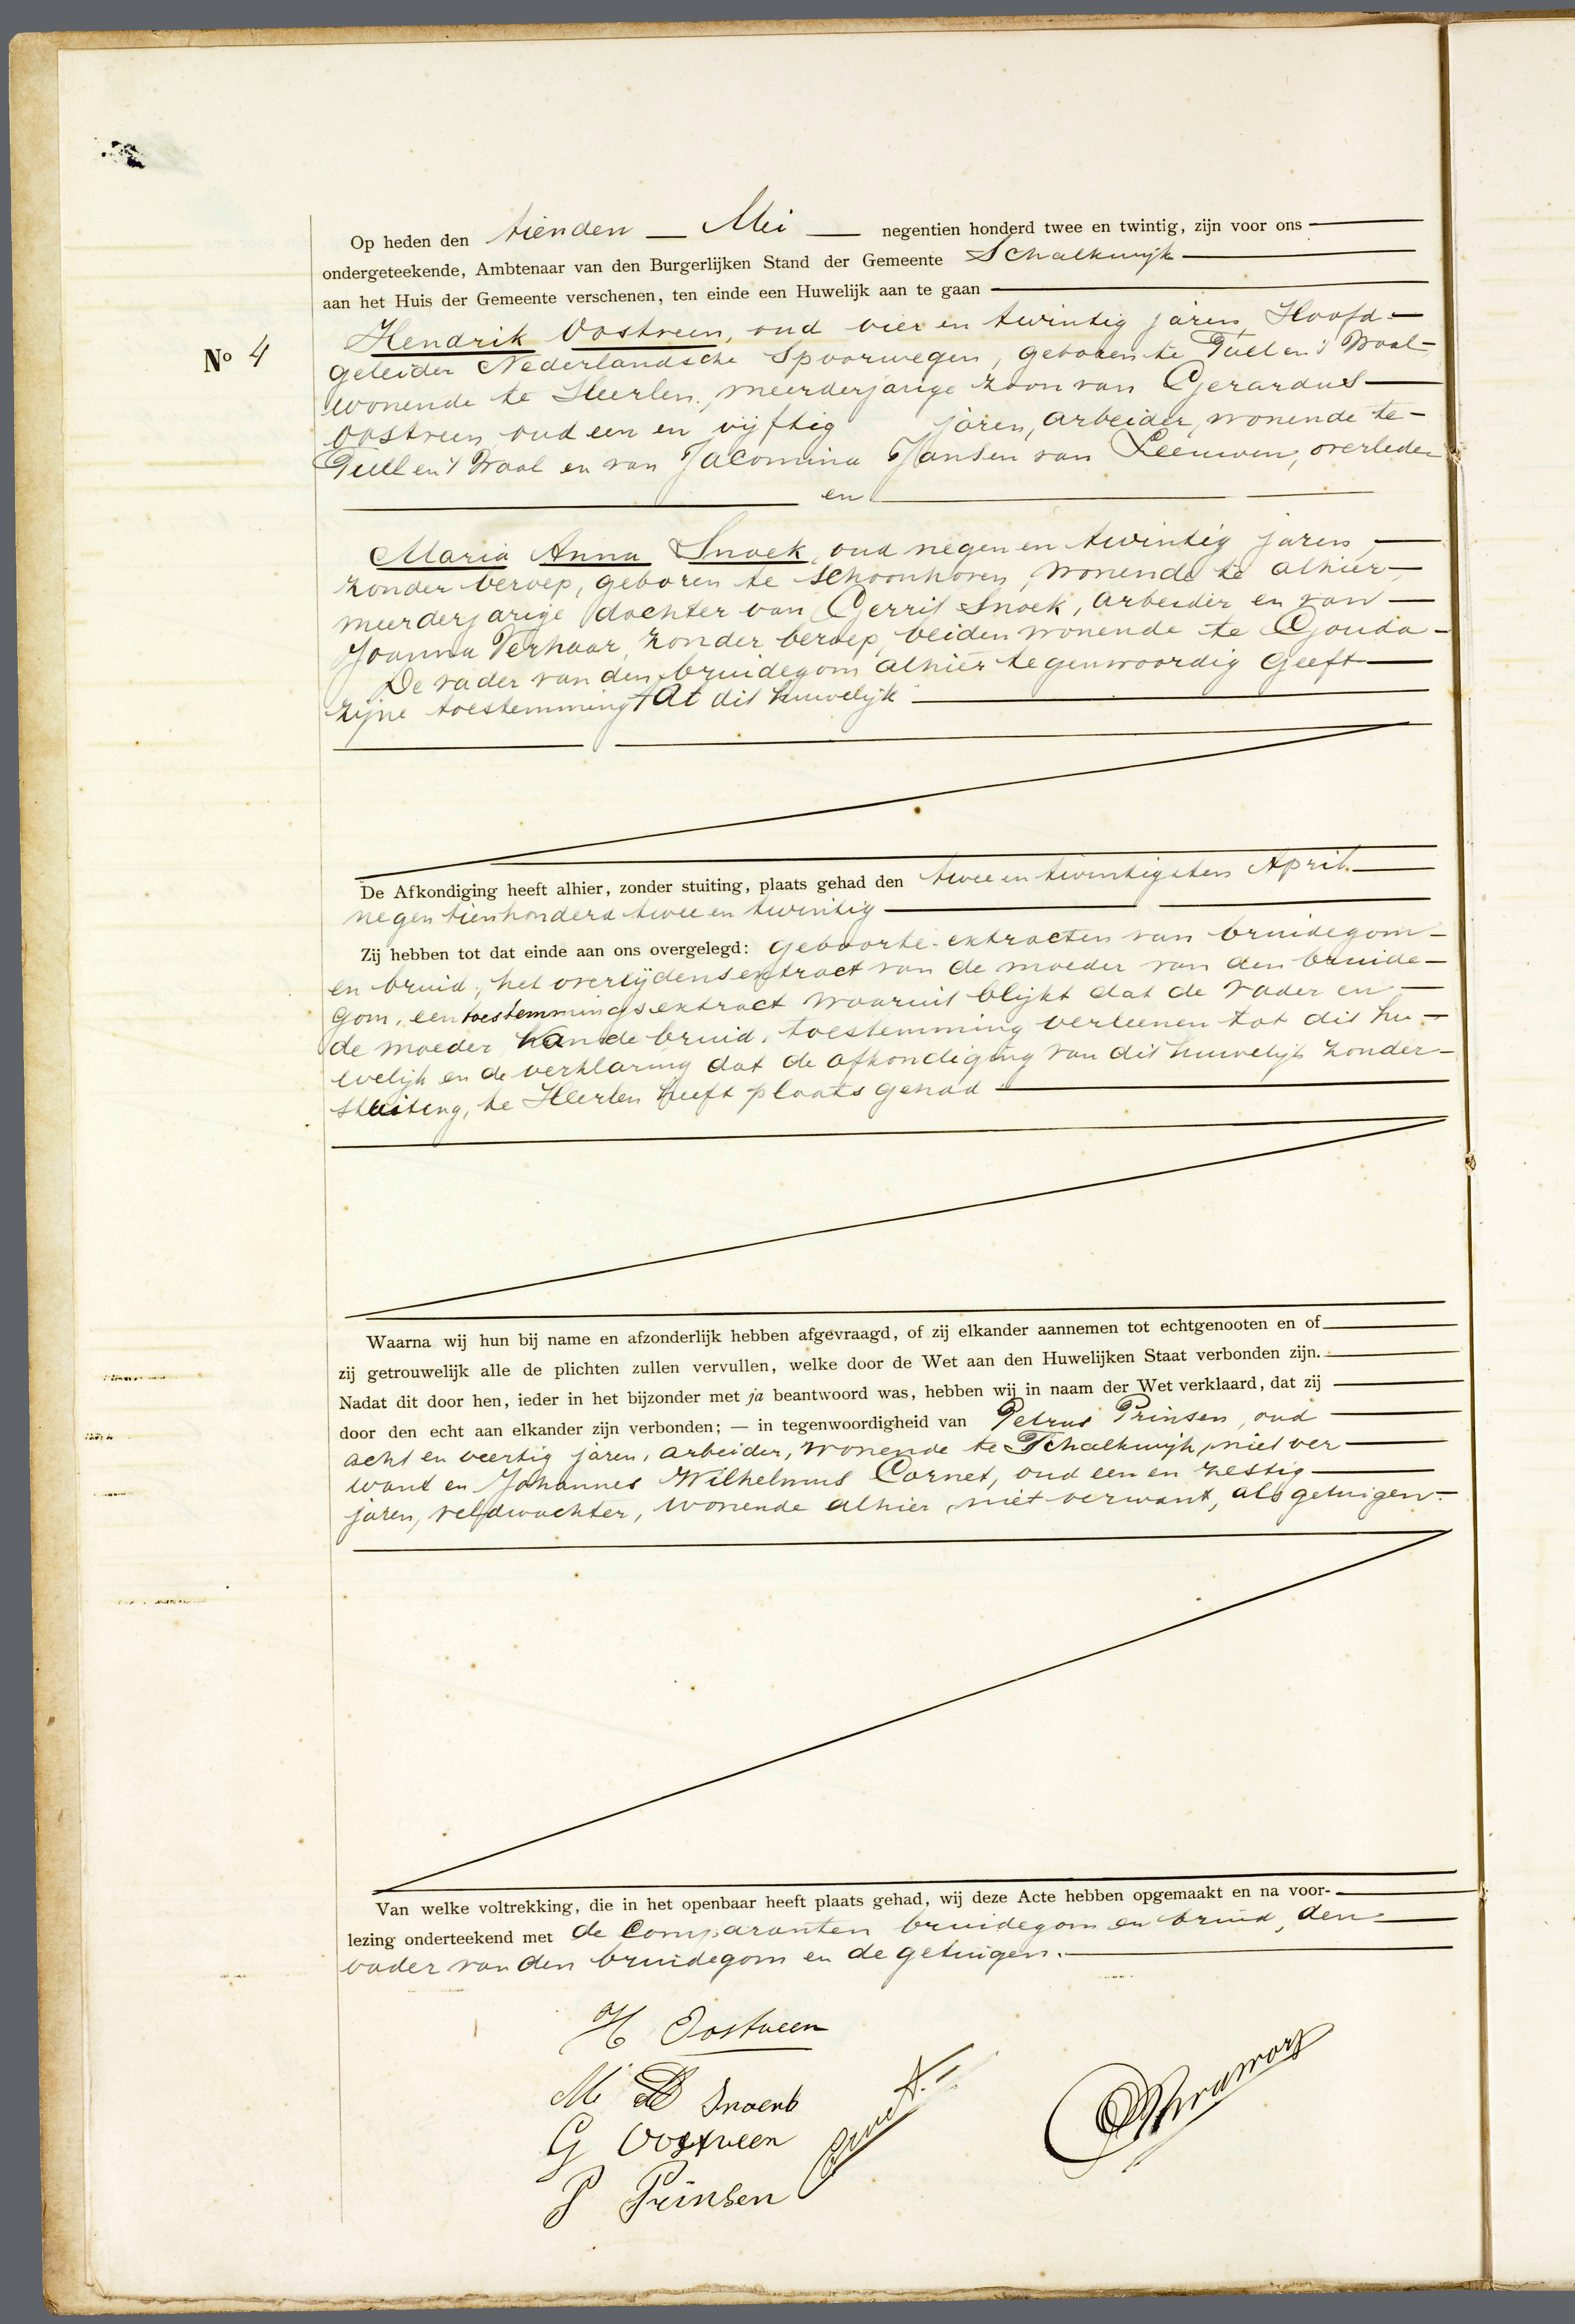 Op heden den tienden Mei negentien honderd twee en twintig, zijn voor ons
ondergeteekende, Ambtenaar van den Burgerlijken Stand der Gemeente Schalkwijk
aan het Huis der Gemeente verschenen, ten einde een Huwelijk aan te gaan
Nº 4
Hendrik Oostveen, oud vier en twintig jaren, Hoofd-
geleider Nederlandsche Spoorwegen, geboren te Tull en 't Waal
wonende te Heerlen, meerderjarige zoon van Gerardus
Oostveen, oud een en vijftig jaren, arbeider, wonende te
Tull en 't Waal en van Jacomina Jansen van Leeuwen, overleden
en
Maria Anna Snoek, oud negen en twintig jaren,
zonder beroep, geboren te Schoonhoven, wonende te alhier,
meerderjarige dochter van Gerrit Snoek, arbeider en van
Joanna Verhaar, zonder beroep, beiden wonende te Gouda
De vader van den bruidegom alhier tegenwoordig geeft
zijne toestemming tot dit huwelijk
De Afkondiging heeft alhier, zonder stuiting, plaats gehad den twee en twintigsten April
negentienhonderd twee en twintig
Zij hebben tot dat einde aan ons overgelegd: geboorte-extracten van bruidegom
en bruid, het overlijdensextract van de moeder van den bruide-
gom, een toestemmingsextract waaruit blijkt dat de vader en
de moeder van de bruid, toestemming verleenen tot dit hu-
welijk en de verklaring dat de afkondiging van dit huwelijk zonder
stuiting, te Heerlen heeft plaats gehad
Waarna wij hun bij name en afzonderlijk hebben afgevraagd, of zij elkander aannemen tot echtgenooten en of
zij getrouwelijk alle de plichten zullen vervullen, welke door de Wet aan den Huwelijken Staat verbonden zijn.
Nadat dit door hen, ieder in het bijzonder met ja beantwoord was, hebben wij in naam der Wet verklaard, dat zij
door den echt aan elkander zijn verbonden; — in tegenwoordigheid van Petrus Prinsen, oud
acht en veertig jaren, arbeider, wonende te Schalkwijk, niet ver
want en Johannes Wilhelmus Cornet, oud een en zestig
jaren, veldwachter, wonende alhier, niet verwant, als getuigen.
Van welke voltrekking, die in het openbaar heeft plaats gehad, wij deze Acte hebben opgemaakt en na voor-
lezing onderteekend met de comparanten bruidegom en bruid, den
vader van den bruidegom en de getuigen.
H Oostveen
M A Snoek
G Oostveen
P Prinsen